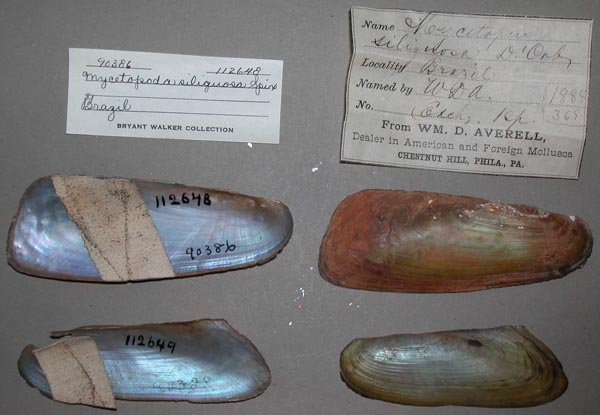 90386 112648
Mycetopoda siliquosa Spix
Brazil
BRYANT WALKER COLLECTION
Name
siliquosa, D'Orb,
Locality Brazil
Named by W D A
No. Exch, Kp.
From WM. D. AVERELL,
Dealer in American and Foreign Mollusca
CHESTNUT HILL, PHILA., PA.
112648
90386
112649